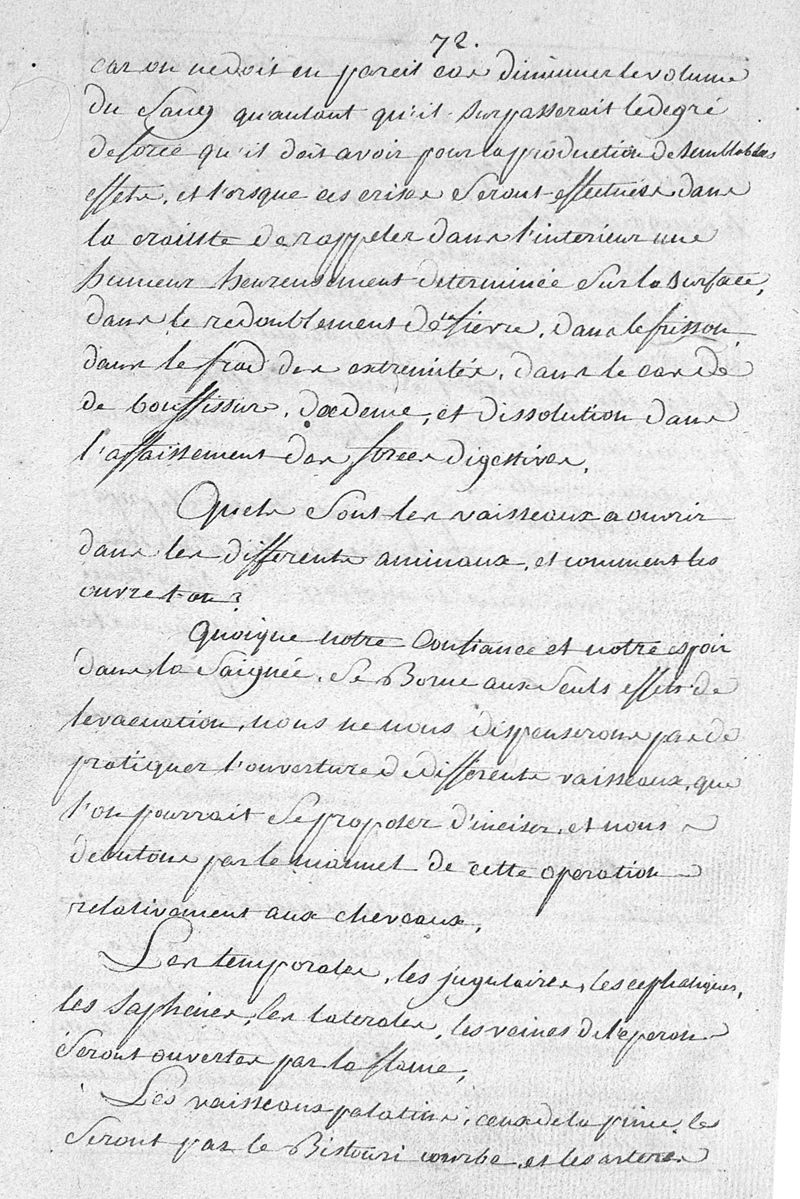 72.
car on ne doit en pareil cas diminuer le volume
du Sang qu'autant qu'il surpasserait le degré
de force qu'il doit avoir pour la production de semblables
effets, et lorsque ces crises Seront effectuées dans
la crainte de rappeler dans l'interieur une
humeur heureusement determinée Sur la Surface,
dans le redoublement de fievre, dans le frisson,
dans le froid des extremités, dans le cas de
de bouffissure, d'œdeme, et dissolution dans
l'affaissement des forces digestives.
Quels Sont les vaisseaux a ouvrir
dans les differents animaux, et comment les
ouvre t-on?
Quoique notre Confiance et notre espoir
dans la Saignée, Se Borne aux Seuls effets de
levacuation, nous ne nous dispenserons pas de
pratiquer l'ouverture de differents vaisseaux, que
l'on pourrait Se proposer d'inciser, et nous
debutons par le manuel de cette operation
relativement aux chevaux.
Les temporales, les jugulaires, les cephaliques,
les Saphenes, les laterales, les veines de l'eperon
Seront ouvertes par la flame,
Les vaisseaux palatins, ceux de la pince, les
Seront par le Bistouri courbe, et les arteres